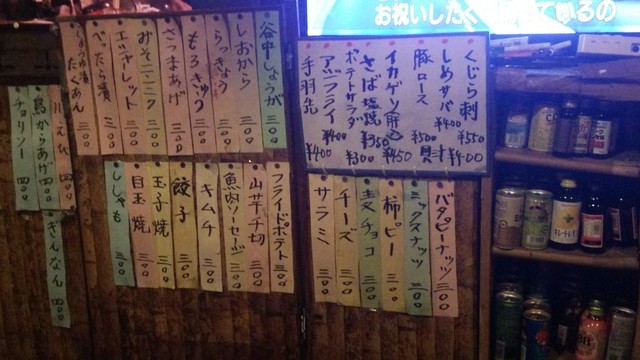 お祝いしたく
いるの
くじら刺 ¥550
しめサバ ¥400
豚ロース ¥500
貝汁 ¥400
イカゲソ
¥450
さば塩焼 ¥350
ポテトサラダ ¥300
アジフライ ¥400
手羽先 ¥400
谷中しょうが 三〇〇
しおから 三〇〇
らっきょう 三〇〇
もろきゅう 三〇〇
さつまあげ 三〇〇
みそニンニク 三〇〇
エシャレット 三〇〇
べったら漬 三〇〇
たくあん 三〇〇
川えび 三〇〇
鳥からあげ 四〇〇
チョリソー 四〇〇
バタピーナッツ 三〇〇
ミックスナッツ 三〇〇
柿ピー 三〇〇
麦チョコ 三〇〇
チーズ 三〇〇
サラミ 三〇〇
フライドポテト 三〇〇
山芋千切 三〇〇
魚肉ソーセージ 三〇〇
キムチ 三〇〇
餃子 三〇〇
玉子焼 三〇〇
目玉焼 三〇〇
ししゃも 三〇〇
ぎんなん 三〇〇